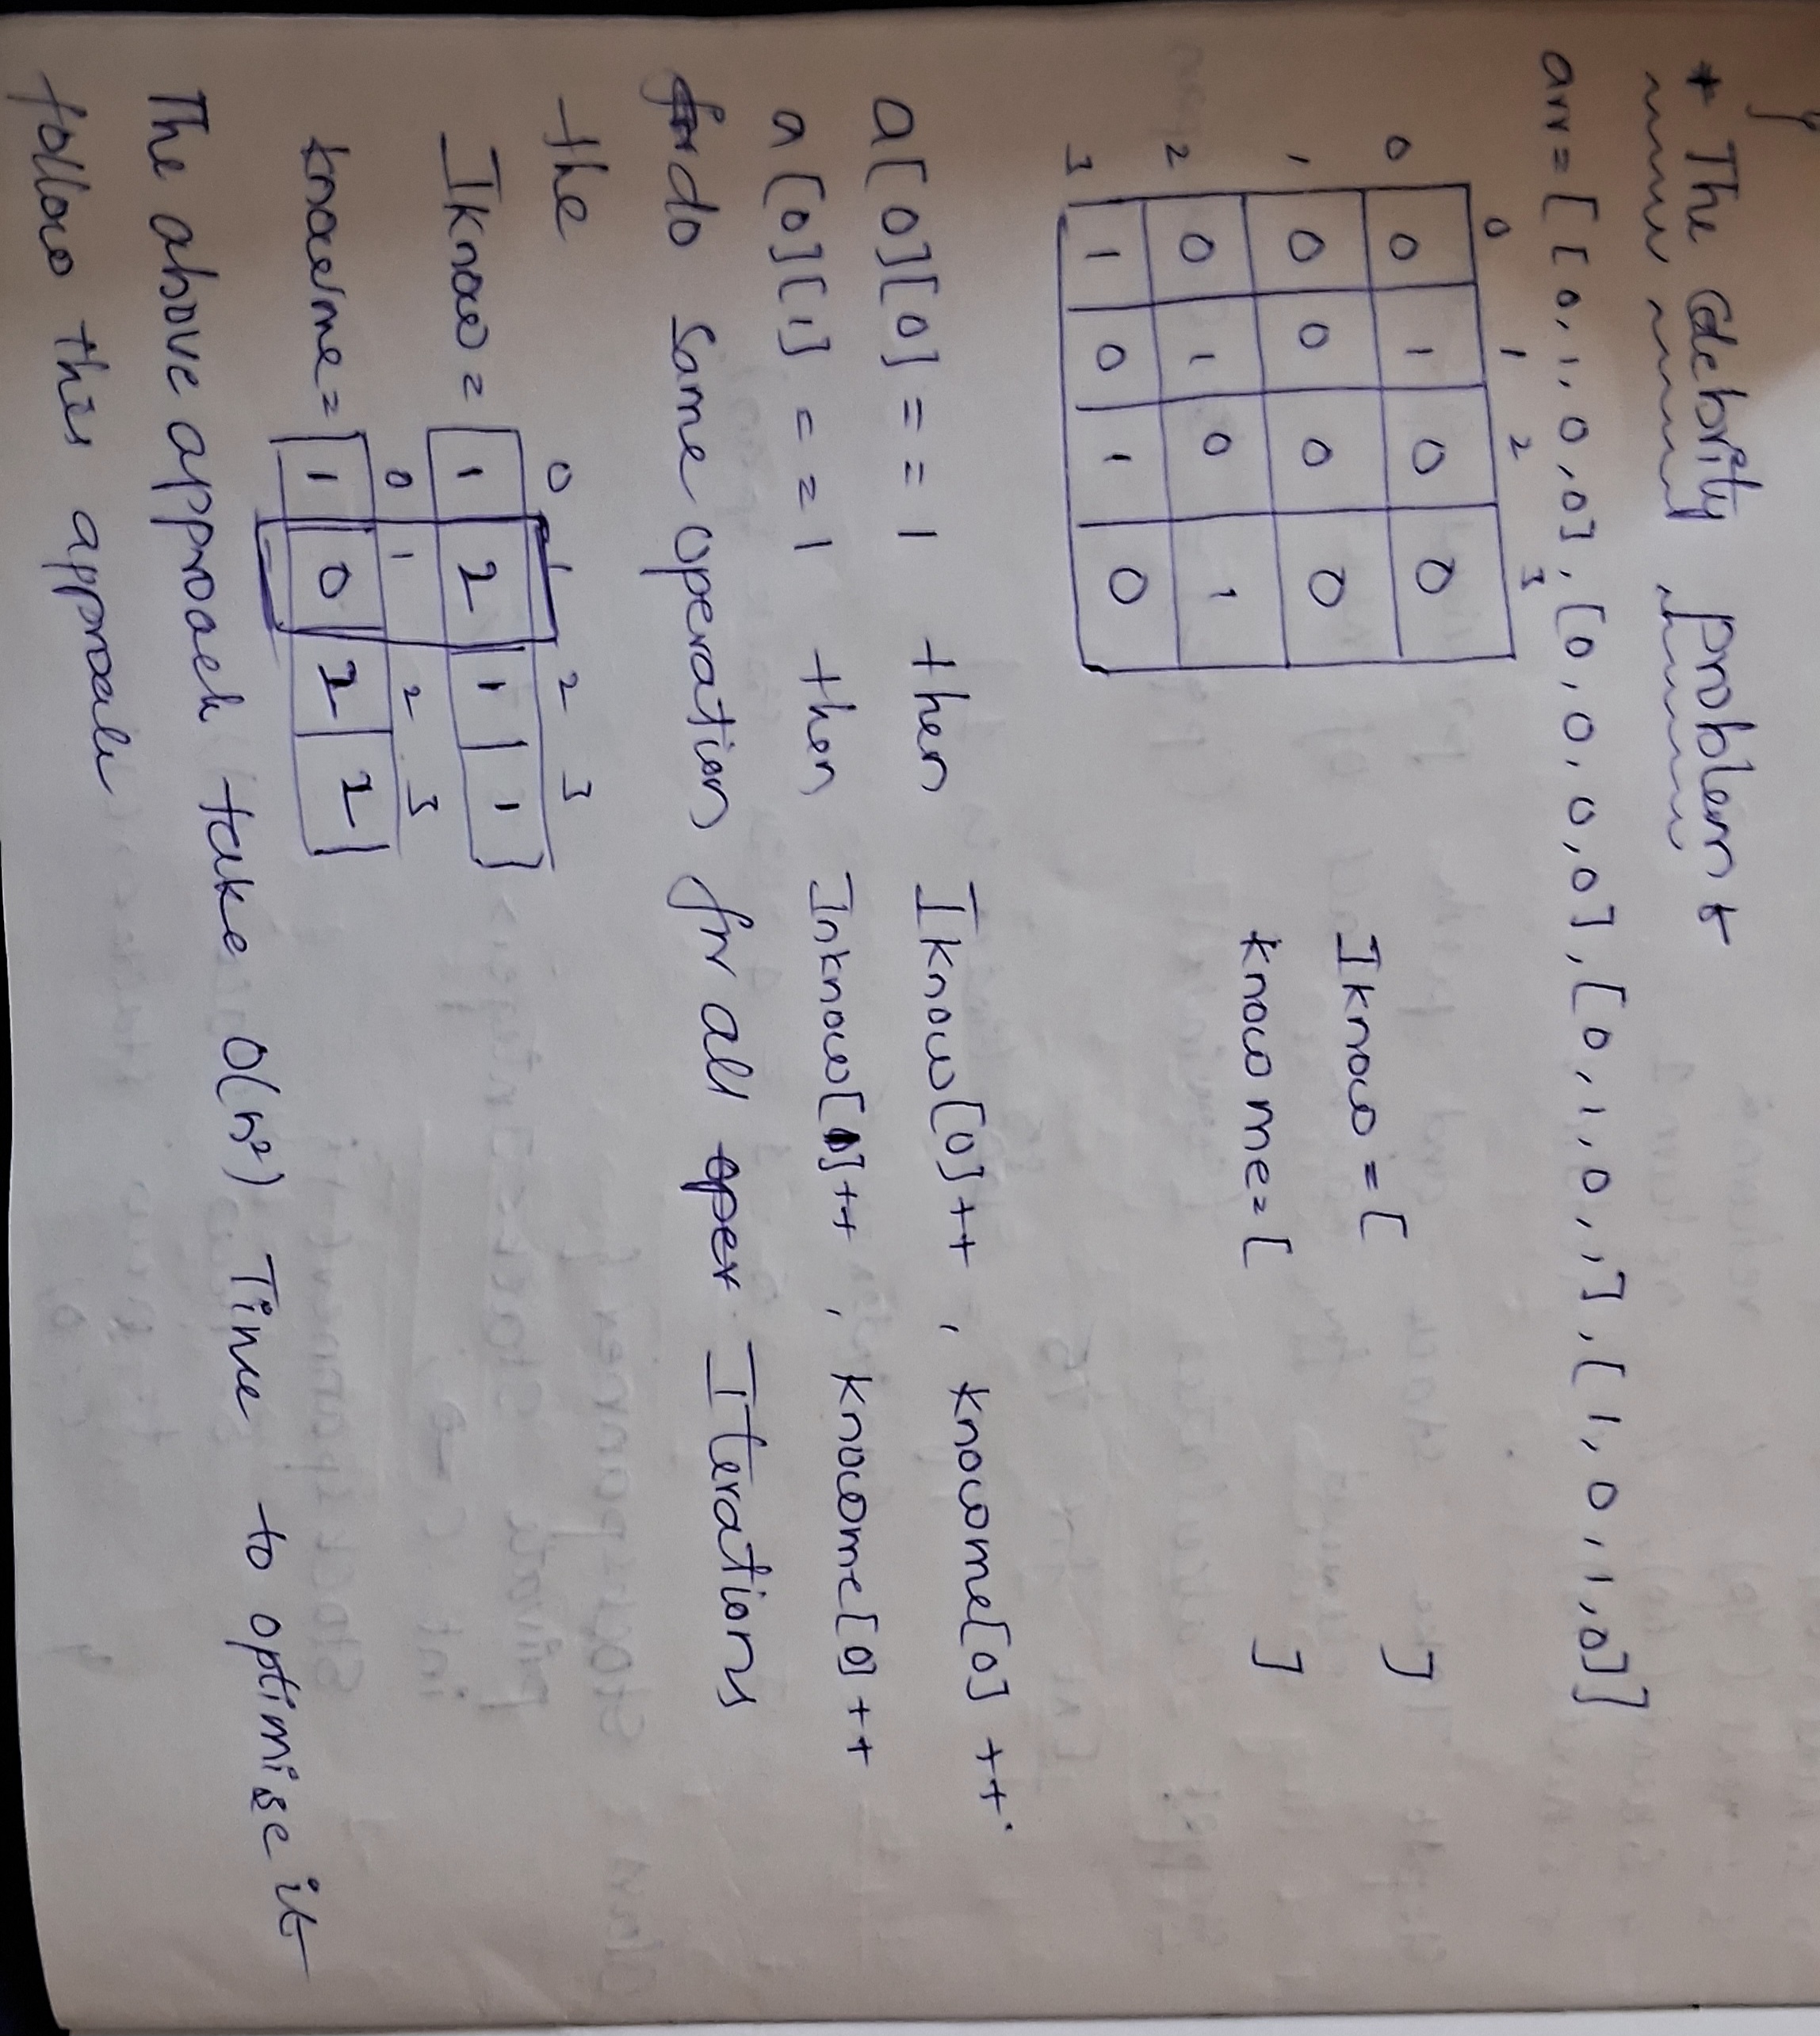 * The Celebrity problem *
arr = [[0,1,0,0],[0,0,0,0],[0,1,0,1],[1,0,1,0]]
0 1 2 3
0 0 1 0 0
1 0 0 0 0 Iknow = [ ]
2 0 1 0 1 know me = [ ]
3 1 0 1 0
a[0][0] == 1 then Iknow[0]++ , knowme[0]++.
a[0][1] == 1 then Inknow[0]++ , knowme[0]++
do Same operation for all Iterations
the
0 1 2 3
Iknow = [1 2 1 1]
0 1 2 3
knowme = [1 0 2 2]
The above approach take O(n²) Time to optimise it
follow this approach